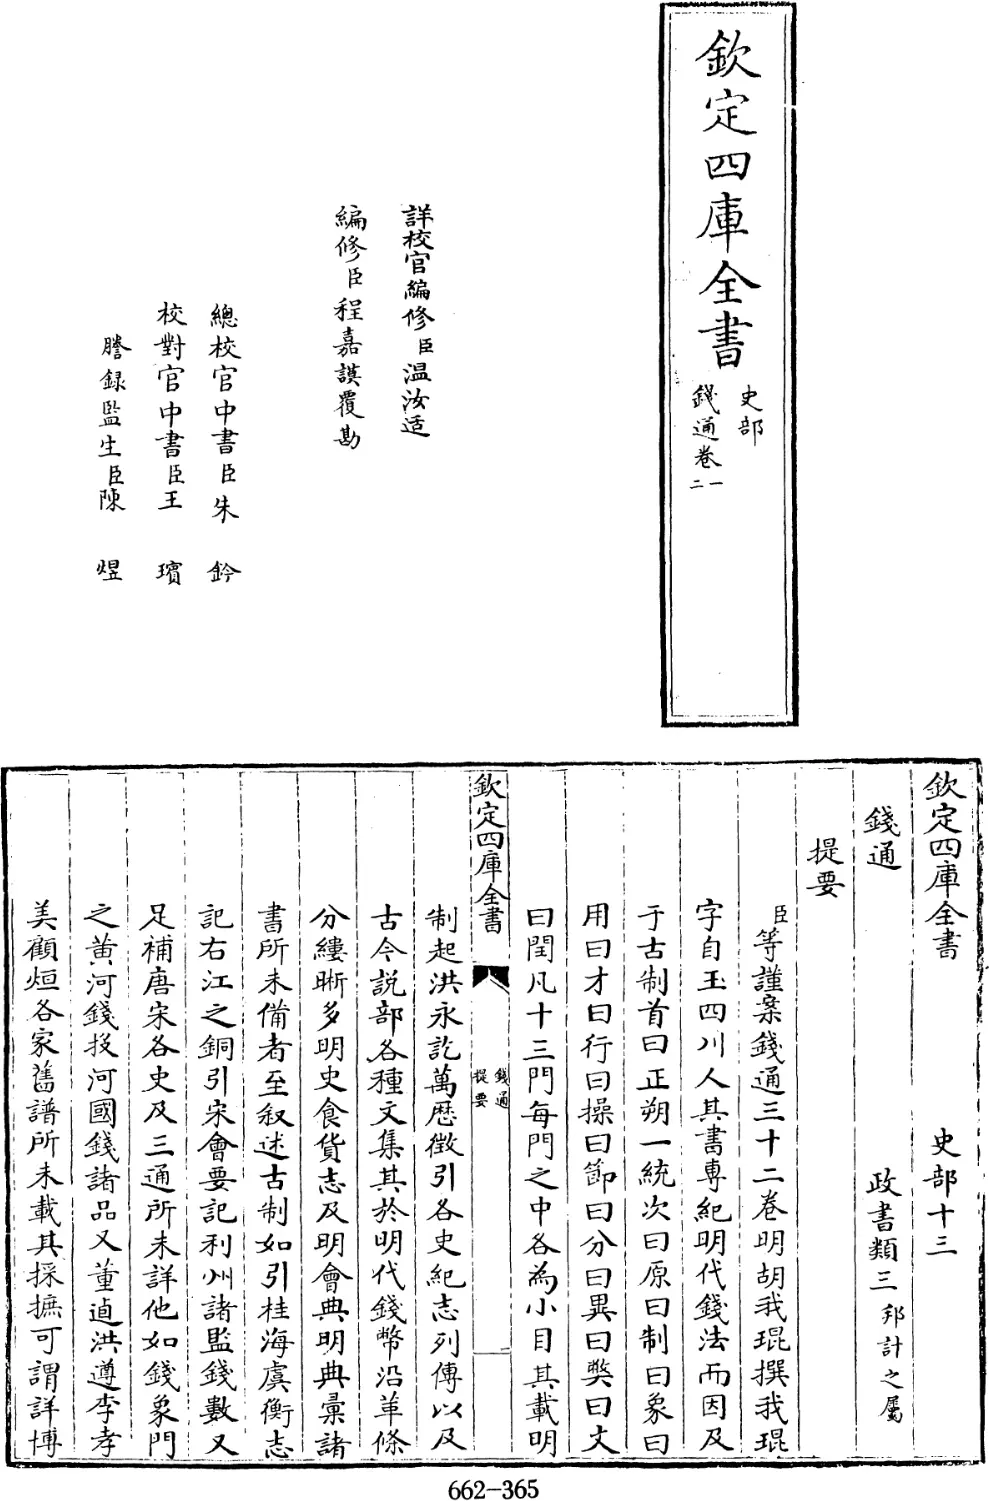 欽定四庫全書
史部
錢通卷一
二
詳校官編修臣温汝适
編修臣程嘉謨覆勘
總校官中書臣朱鈐
校對官中書臣王璸
謄録監生臣陳煜
欽定四庫全書 史部十三
錢通 政書類三邦計之屬
提要
臣等謹案錢通三十二卷明胡我琨撰我琨
字自玉四川人其書專紀明代錢法而因及
于古制首曰正朔一統次曰原曰制曰象曰
用曰才曰行曰操曰節曰分曰異曰弊曰文
曰閏凡十三門每門之中各為小目其載明
欽定四庫全書
錢通
提要
一
制起洪永訖萬厯徴引各史紀志列傳以及
古今説部各種文集其於明代錢幣沿革條
分縷晰多明史食貨志及明會典明典彚諸
書所未備者至叙述古制如引桂海虞衡志
記右江之銅引宋會要記利州諸監錢數又
足補唐宋各史及三通所未詳他如錢象門
之黄河錢投河國錢諸品又董逌洪遵李孝
美顧烜各家舊譜所未載其採摭可謂詳博
662-365